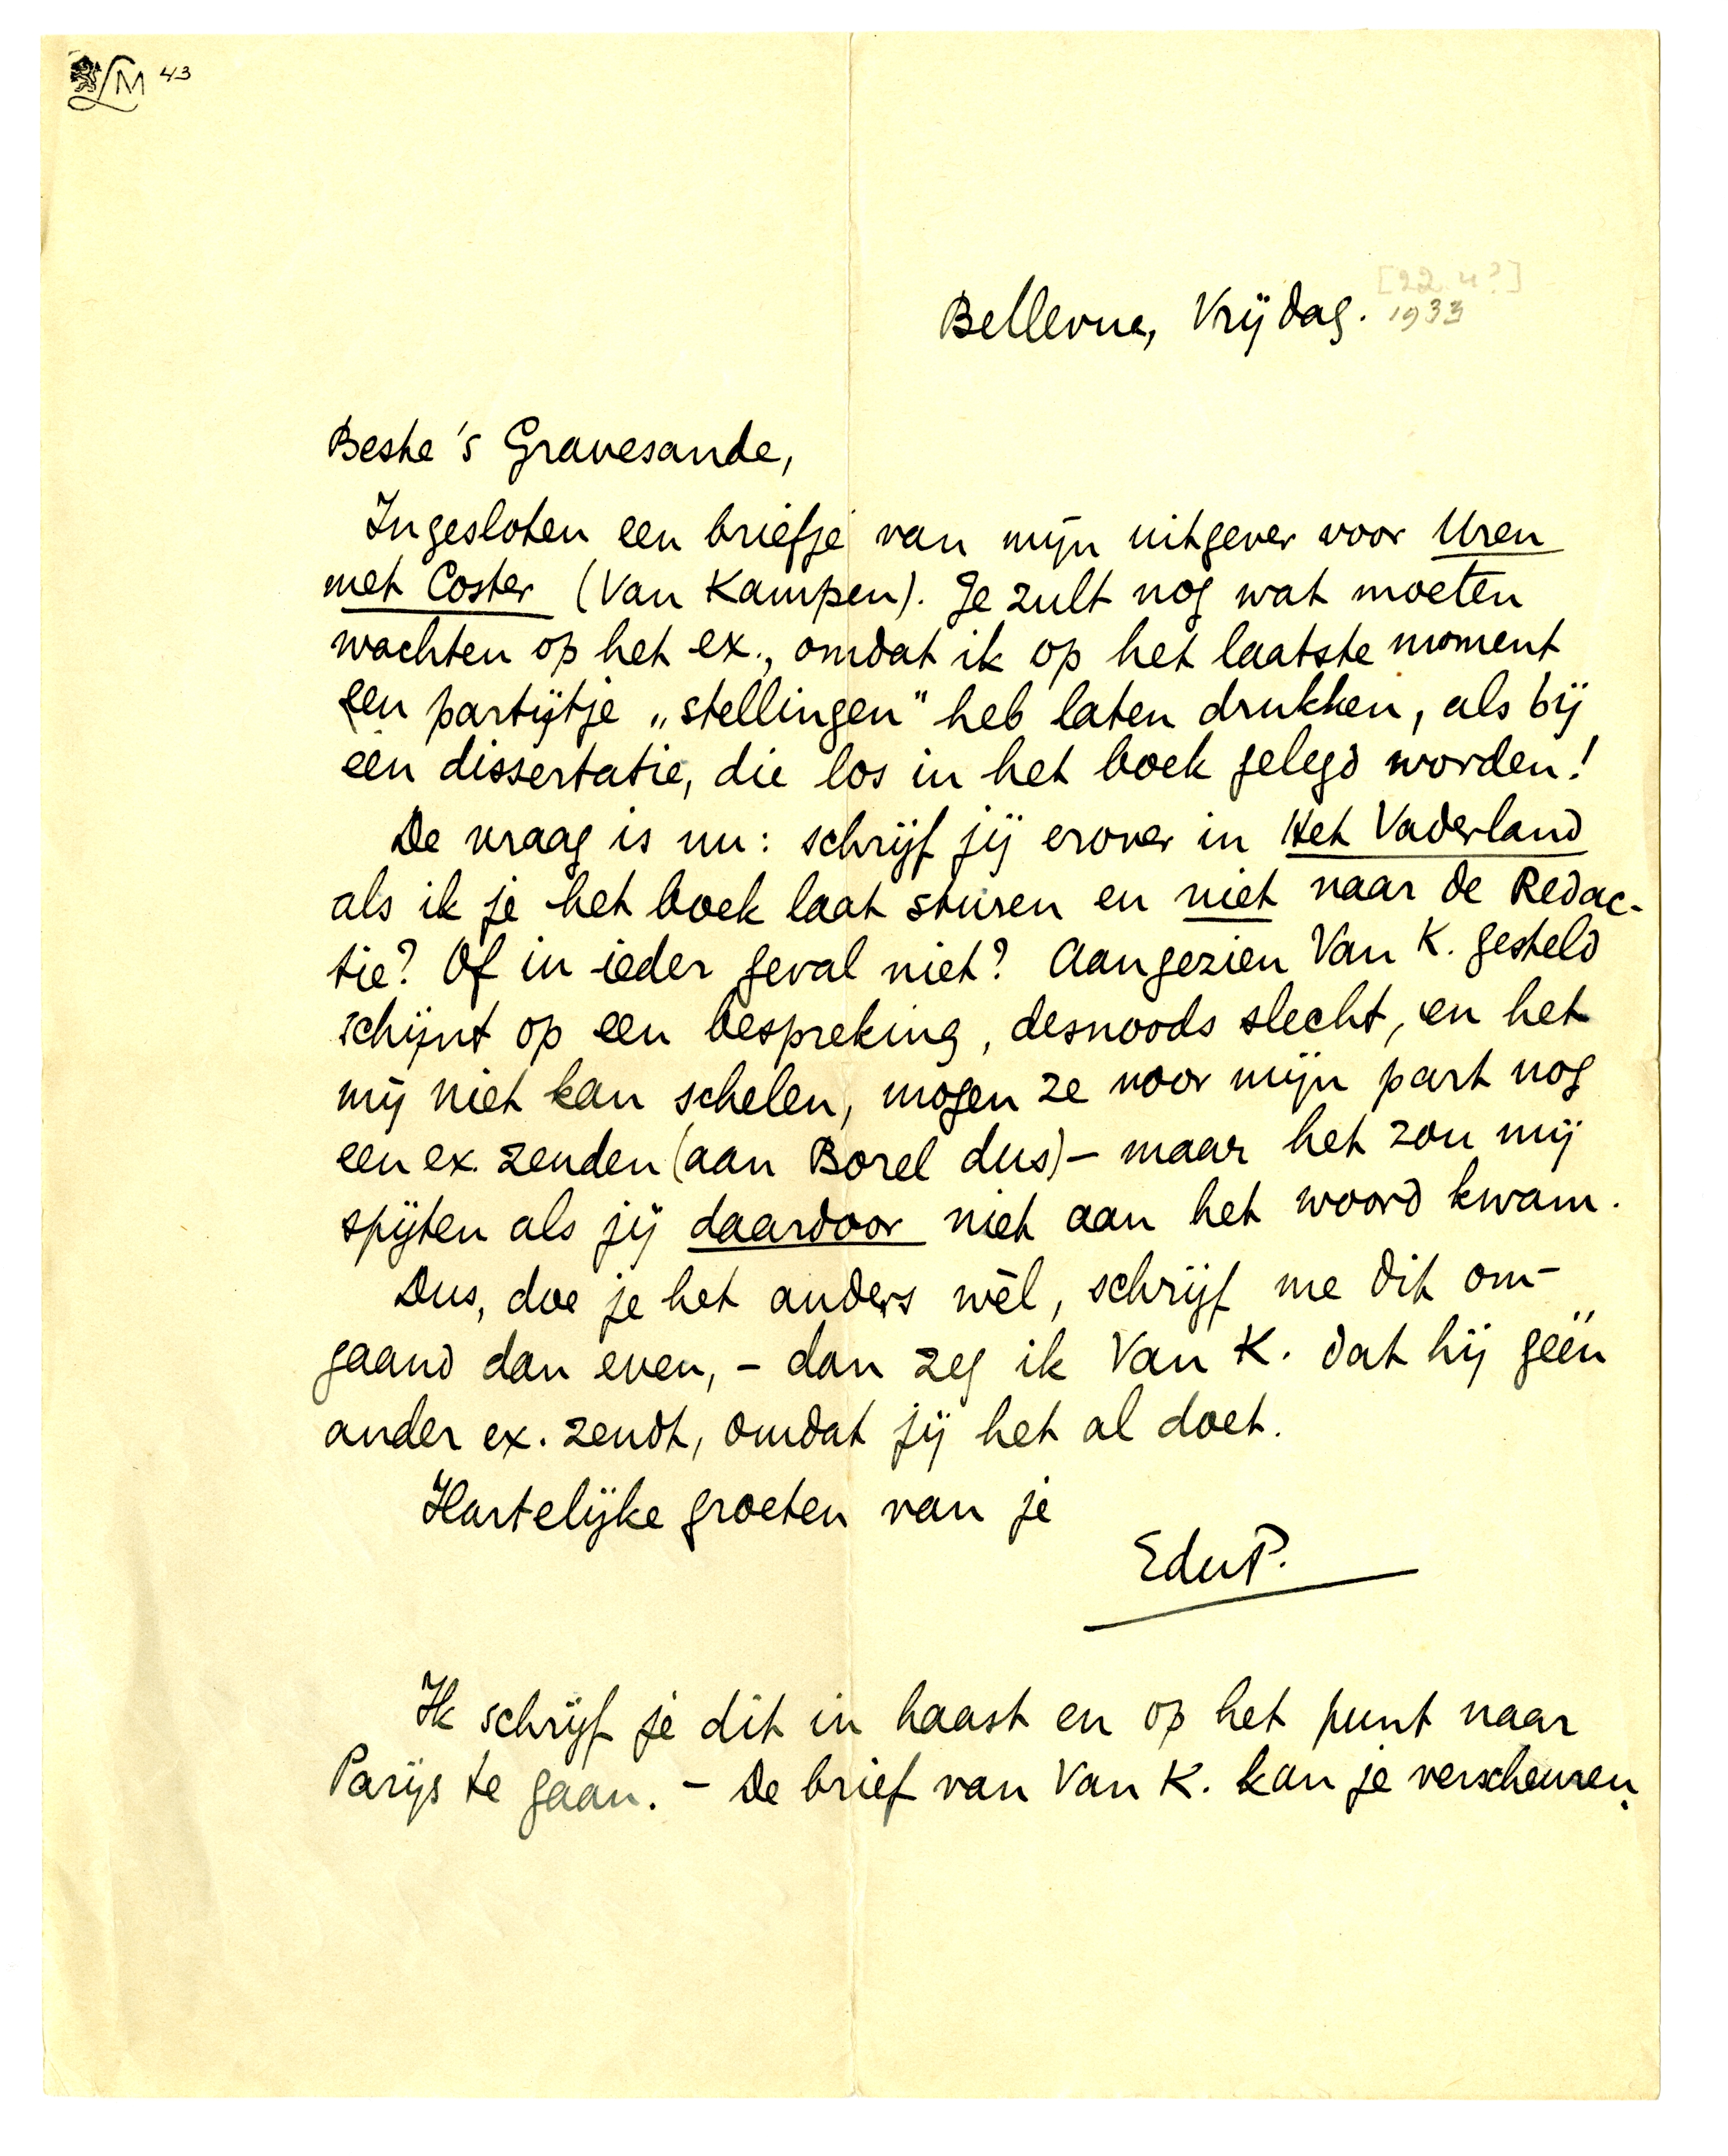 LM 43
[22.4?]
Bellevue, Vrijdag. 1933
Beste 's Gravesande,
Ingesloten een briefje van mijn uitgever voor Uren
met Coster (Van Kampen). Je zult nog wat moeten
wachten op het ex., omdat ik op het laatste moment
een partijtje „stellingen" heb laten drukken, als bij
een dissertatie, die los in het boek gelegd worden!
De vraag is nu: schrijf jij erover in Het Vaderland
als ik je het boek laat sturen en niet naar de Redac-
tie? Of in ieder geval niet? Aangezien Van K. gesteld
schijnt op een bespreking, desnoods slecht, en het
mij niet kan schelen, mogen ze voor mijn part nog
een ex. zenden (aan Borel dus) – maar het zou mij
spijten als jij daardoor niet aan het woord kwam.
Dus, doe je het anders wèl, schrijf me dit om-
gaand dan even, – dan zeg ik Van K. dat hij géén
ander ex. zendt, omdat jij het al doet.
Hartelijke groeten van je
EduP.
Ik schrijf je dit in haast en op het punt naar
Parijs te gaan. – De brief van Van K. kan je verscheuren.